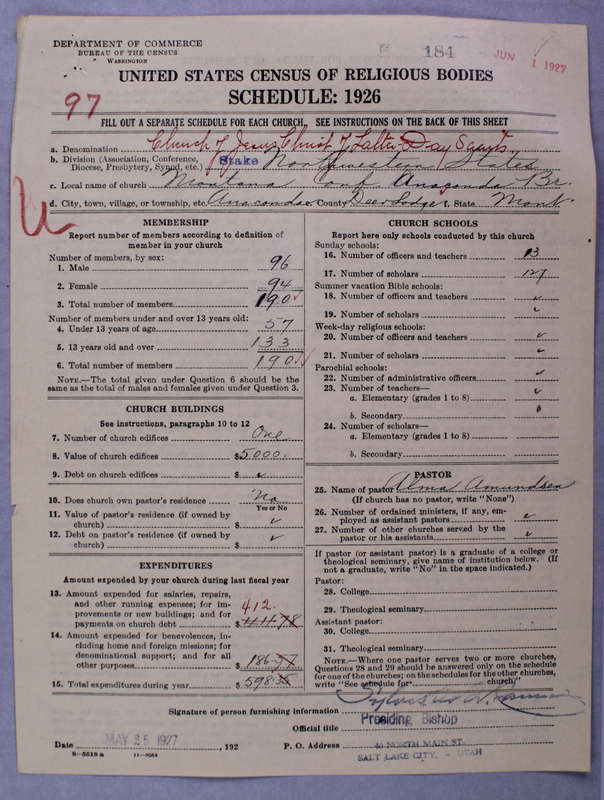 DEPARTMENT OF COMMERCE
BUREAU OF THE CENSUS
WASHINGTON
184
JUN 1 1927
UNITED STATES CENSUS OF RELIGIOUS BODIES
SCHEDULE: 1926
97
FILL OUT A SEPARATE SCHEDULE FOR EACH CHURCH. SEE INSTRUCTIONS ON THE BACK OF THIS SHEET
a. Denomination Church of Jesus Christ of Latter Day Saints
b. Division (Association, Conference, Diocese, Presbytery, Synod, etc.) Stake Northwestern States
c. Local name of church Montana Conf. Anaconda Br.
d. City, town, village, or township, etc. Anaconda e. County Deer Lodge f. State Mont.
MEMBERSHIP
Report number of members according to definition of
member in your church
Number of members, by sex:
1. Male 96
2. Female 94
3. Total number of members 190
Number of members under and over 13 years old:
4. Under 13 years of age 57
5. 13 years old and over 133
6. Total number of members 190
NOTE.—The total given under Question 6 should be
the same as the total of males and females given under Question 3.
CHURCH BUILDINGS
See instructions, paragraphs 10 to 12
7. Number of church edifices One
8. Value of church edifices $5000.
9. Debt on church edifices $
10. Does church own pastor's residence No
Yes or No
11. Value of pastor's residence (if owned by
church) $
12. Debt on pastor's residence (if owned by
church) $
EXPENDITURES
Amount expended by your church during last fiscal year
13. Amount expended for salaries, repairs,
and other running expenses; for im-
provements or new buildings; and for
payments on church debt $ 412.
14. Amount expended for benevolences, in-
cluding home and foreign missions; for
denominational support; and for all
other purposes $ 186.
15. Total expenditures during year $ 598
CHURCH SCHOOLS
Report here only schools conducted by this church
Sunday schools:
16. Number of officers and teachers 13
17. Number of scholars 127
Summer vacation Bible schools:
18. Number of officers and teachers
19. Number of scholars
Week-day religious schools:
20. Number of officers and teachers
21. Number of scholars
Parochial schools:
22. Number of administrative officers
23. Number of teachers—
a. Elementary (grades 1 to 8)
b. Secondary
24. Number of scholars—
a. Elementary (grades 1 to 8)
b. Secondary
PASTOR
25. Name of pastor Alma Amundsen
(If church has no pastor, write "None")
26. Number of ordained ministers, if any, em-
ployed as assistant pastors
27. Number of other churches served by the
pastor or his assistants
If pastor (or assistant pastor) is a graduate of a college or
theological seminary, give name of institution below. (If
not a graduate, write "No" in the space indicated.)
Pastor:
28. College
29. Theological seminary
Assistant pastor:
30. College
31. Theological seminary
NOTE.—Where one pastor serves two or more churches,
Questions 28 and 29 should be answered only on the schedule
for one of the churches; on the schedules for the other churches,
write "See schedule for church."
Signature of person furnishing information
Official title Presiding Bishop
Date MAY 25 1927, 192
P. O. Address 40 NORTH MAIN ST.
SALT LAKE CITY, - UTAH
8-5518 a 11-9054